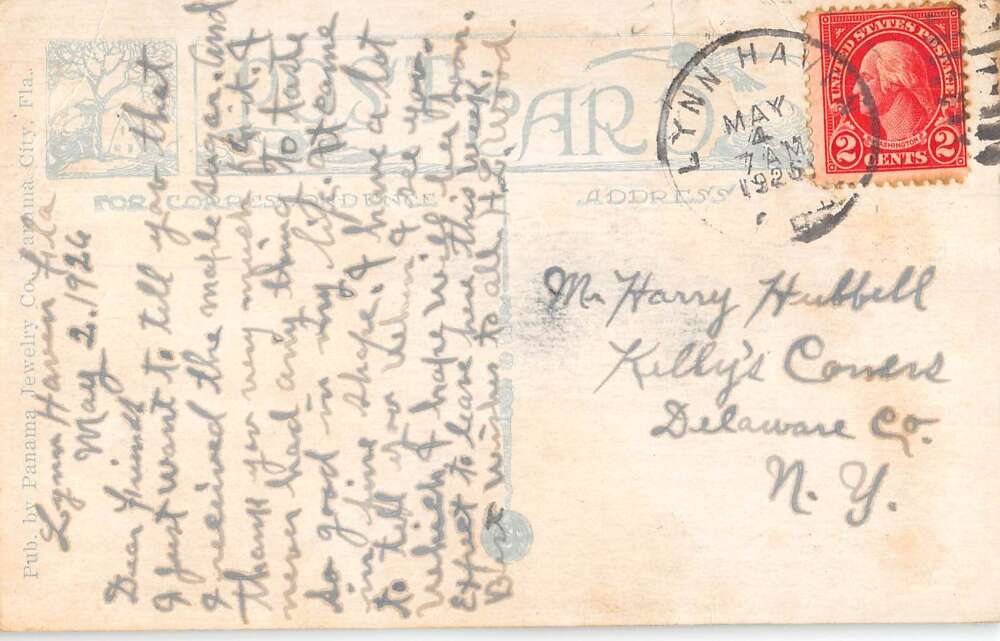 Pub. by Panama Jewelry Co. Panama City Fla.
POST CARD
FOR CORRESPONDENCE
ADDRESS
LYNN HA
MAY
4
7 AM
1926
UNITED STATES POSTAGE
WASHINGTON
2 CENTS 2
Lynn Haven Fla
May 2. 1926
Dear Friends
I just want to tell you that
I received the maple sugar. And
thank you very much for it. I
never had any thing to taste
so good in my life. It came
in fine shape. I have a lot
to tell you when I see you.
which I hope will be soon.
Expect to leave here this week.
Best wishes to all H.L.
Mr Harry Hubbell
Kelly's Corners
Delaware Co.
N. Y.